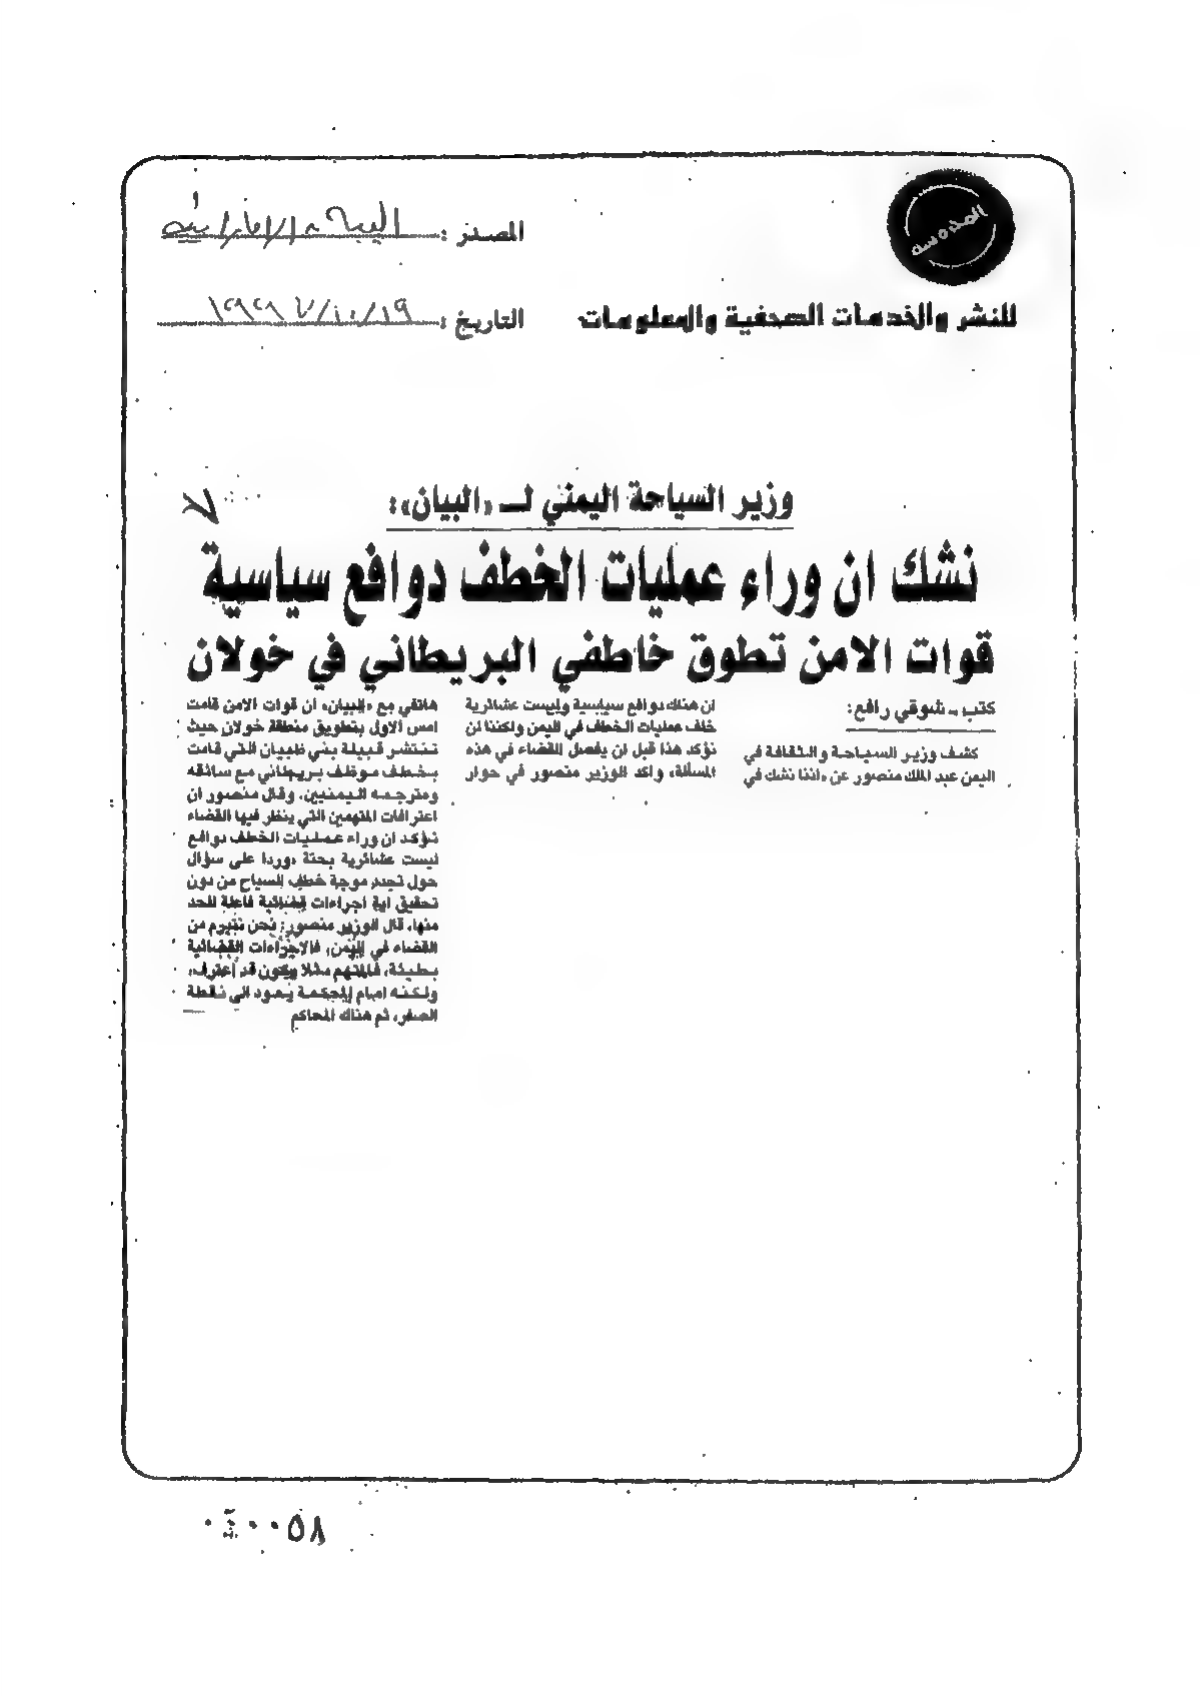 المصدر : البيان الإماراتية
للنشر والخدمات الصحفية والمعلومات
التاريخ : ١٩/١٠/١٩٩٧
وزير السياحة اليمني لـ «البيان»:
نشك ان وراء عمليات الخطف دوافع سياسية
قوات الامن تطوق خاطفي البريطاني في خولان
كتب ـ شوقي رافع:
كشف وزير السياحة والثقافة في
اليمن عبد الملك منصور عن «اننا نشك في
ان هناك دوافع سياسية وليست عشائرية
خلف عمليات الخطف في اليمن ولكننا لن
نؤكد هذا قبل ان يفصل القضاء في هذه
المسألة، واكد الوزير منصور في حوار
هاتفي مع «البيان» ان قوات الامن قامت
امس الاول بتطويق منطقة خولان حيث
تنتشر قبيلة بني ظبيان التي قامت
بخطف موظف بريطاني مع سائقه
ومترجمه اليمنيين. وقال منصور ان
اعترافات المتهمين التي ينظر فيها القضاء
تؤكد ان وراء عمليات الخطف دوافع
ليست عشائرية بحتة «وردا على سؤال
حول تجدد موجة خطف السياح من دون
تحقيق اية اجراءات قضائية فاعلة للحد
منها، قال الوزير منصور: نحن نتبرم من
القضاء في اليمن، فالاجراءات القضائية
بطيئة، فالمتهم مثلا يكون قد اعترف،
ولكنه امام المحكمة يعود الى نقطة
الصفر، ثم هناك المحاكم
٥٨